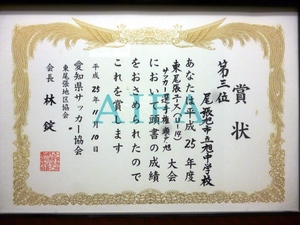 賞状
第三位
尾張旭市立旭中学校
あなたは平成25年度
東尾張ユース(U-14)
サッカー選手権瀬戸旭大会
において頭書の成績
をおさめられたので
これを賞します
平成25年11月10日
愛知県サッカー協会
東尾張地区協会
会長 林 錠
AIFA